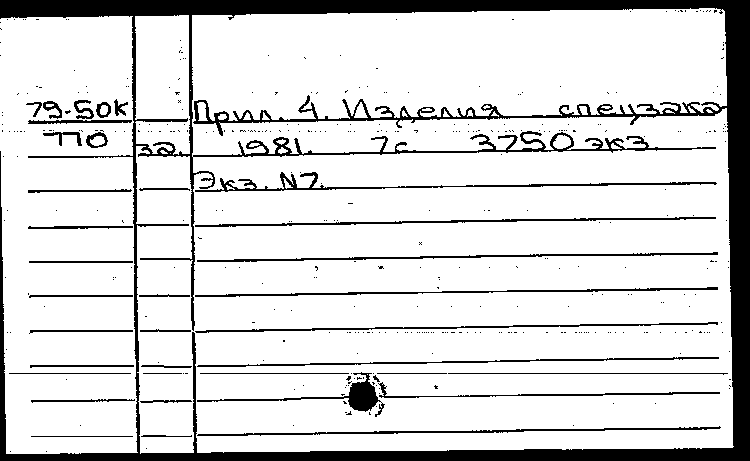 79-50к Прил. 4. Изделия спецзака-
770 за. 1981. 7с. 3750 экз.
Экз. N7.